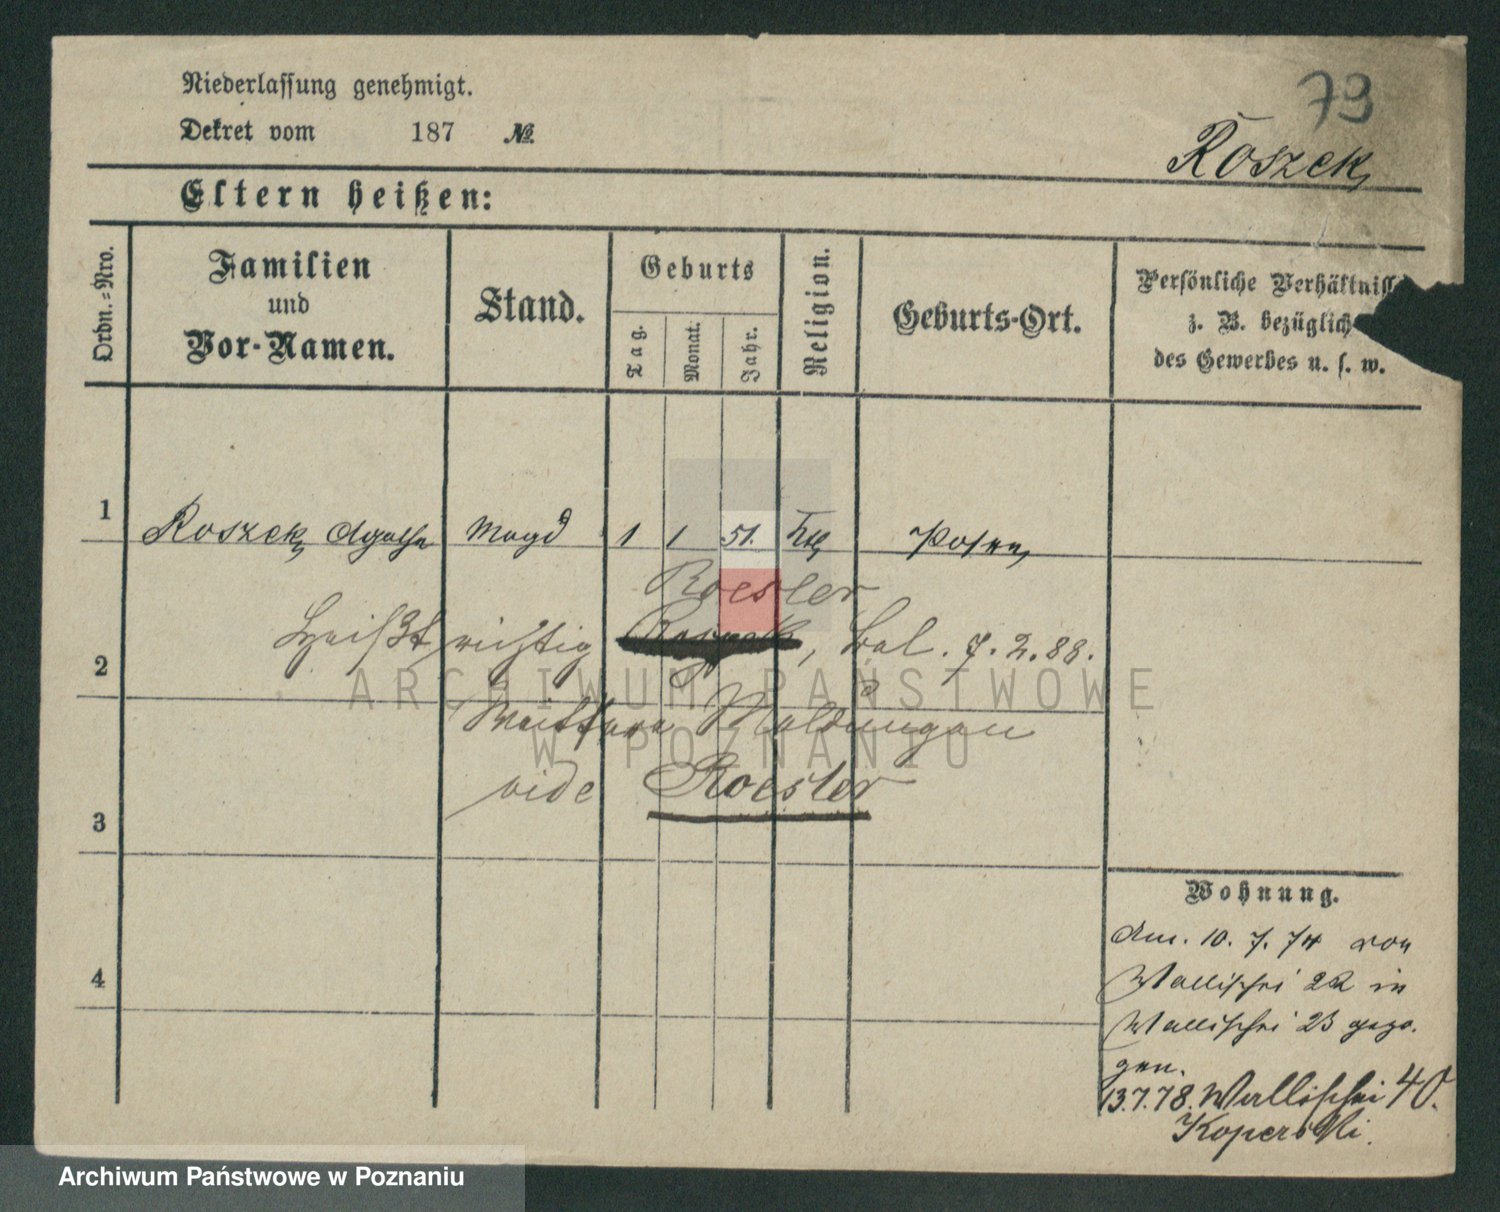 Niederlassung genehmigt.
79
Dekret vom 187 №
Roszek
Eltern heißen:
Ordn.-Nro.
Familien
und
Vor-Namen.
Stand.
Geburts
Tag.
Monat.
Jahr.
Religion.
Geburts-Ort.
Persönliche Verhältniss
z. B. bezüglich
des Gewerbes u. s. w.
1 Roszek Agathe Magd 1 1 51. kth Posen
Roesler
2 Heißt richtig , bal. 7.2.88.
Weitere Meldungen
vide Roesler
3
4
Wohnung.
Am. 10. 7. 74 von
Wallischei 22 in
Wallischei 23 gezo-
gen.
13.7.78. Wallischei 40.
Koperski.
ARCHIWUM PAŃSTWOWE
W POZNANIU
Archiwum Państwowe w Poznaniu